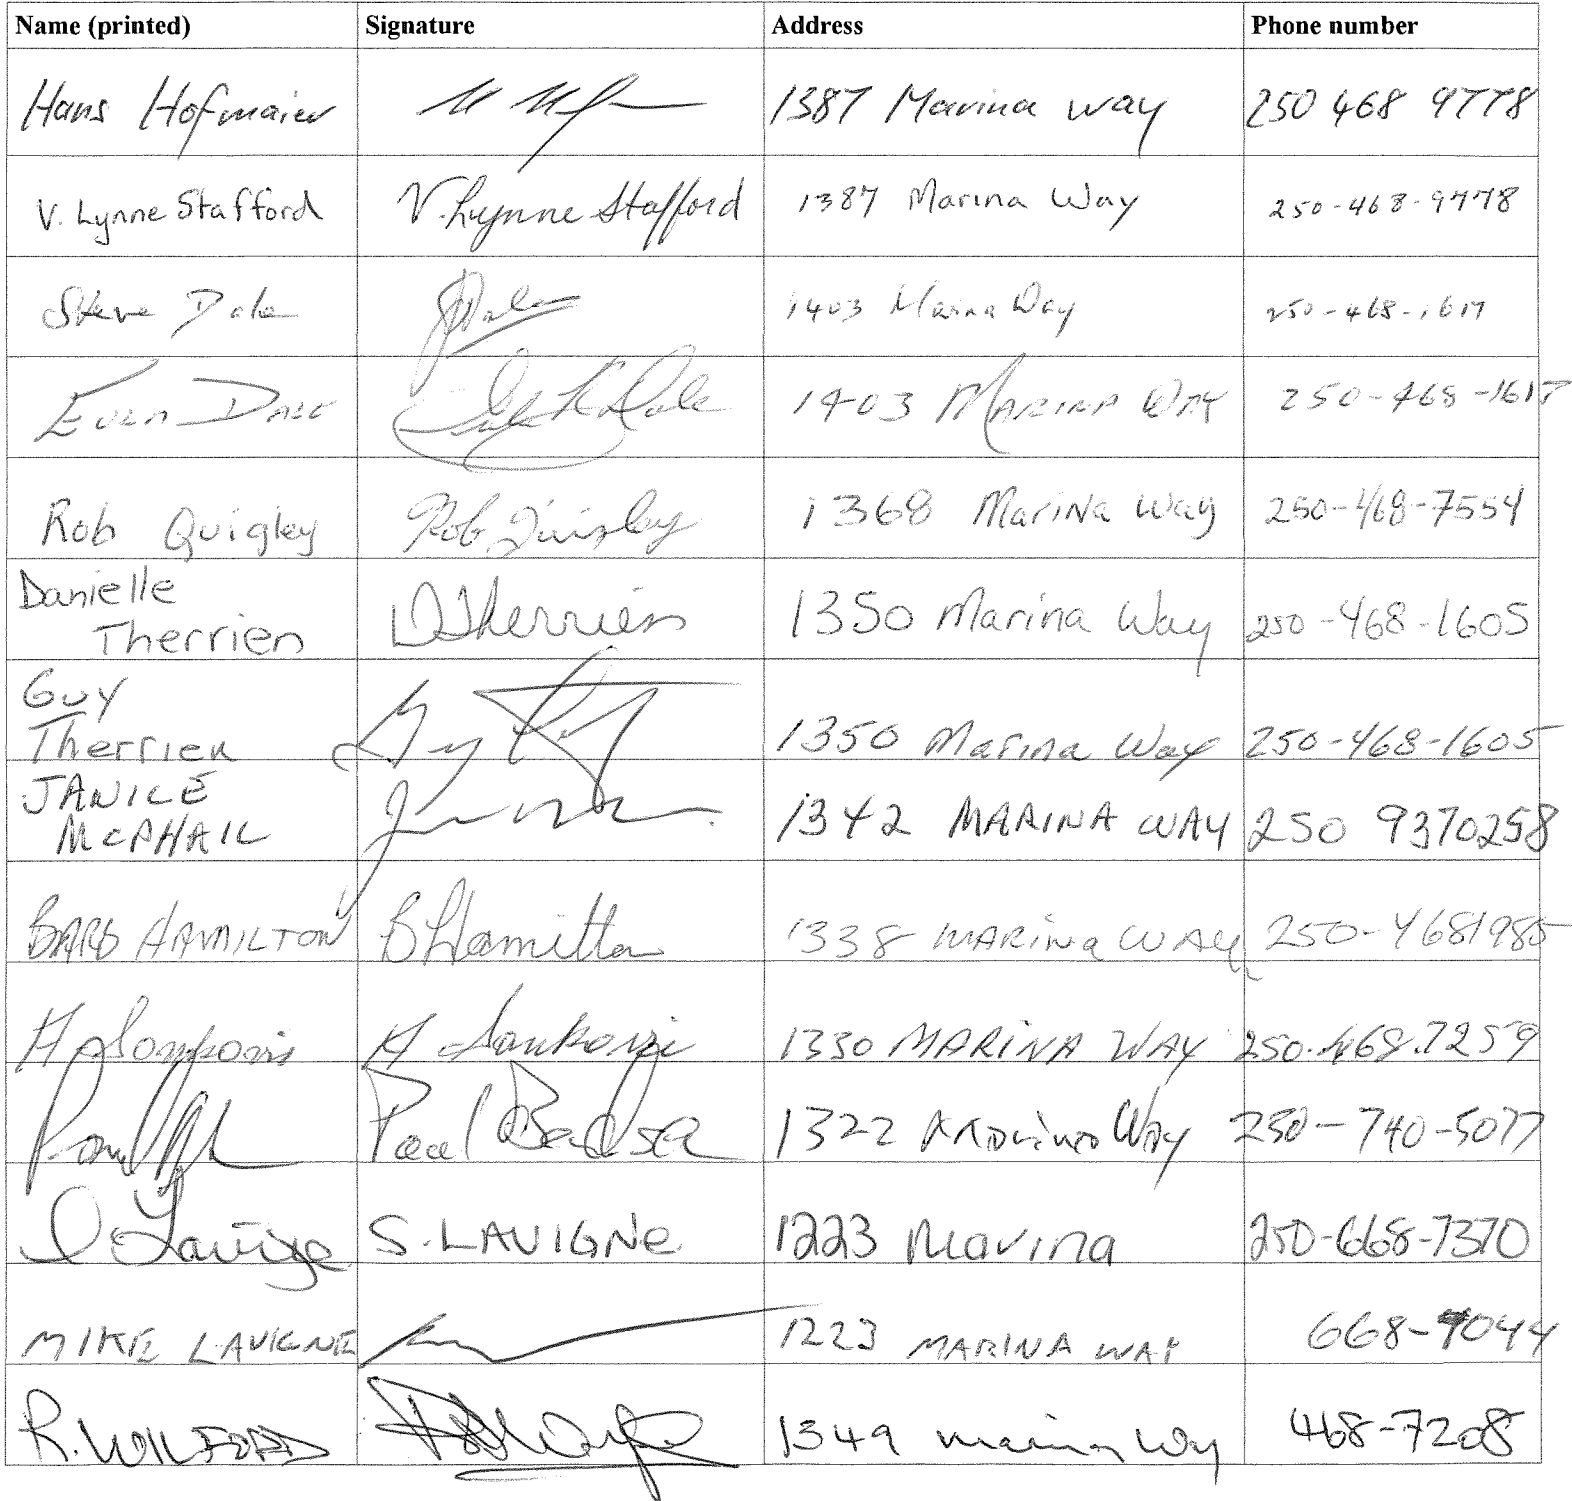 Name (printed) Signature Address Phone number
Hans Hofmaier 1387 Marina way 250 468 9778
V. Lynne Stafford V. Lynne Stafford 1387 Marina Way 250-468-9778
Steve Dale SDale 1403 Marina Way 250-468-1617
Dale Dale 1403 MARINA WAY 250-468-1617
Rob Quigley Rob Quigley 1368 Marina Way 250-468-7554
Danielle
Therrien DTherrien 1350 Marina Way 250-468-1605
Guy
Therrien Guy 1350 Marina Way 250-468-1605
JANICE
MCPHAIL 1342 MARINA WAY 250 9370258
BARB HAMILTON B Hamilton 1338 MARINA WAY 250-4681985
1330 MARINA WAY 250.468.7259
Paul 1322 Way 250-740-5077
Lavigne S. LAVIGNE 1223 Marina 250-668-7370
MIKE LAVIGNE 1223 MARINA WAY 668-9044
R. WILFORD 1349 Marina Way 468-7208